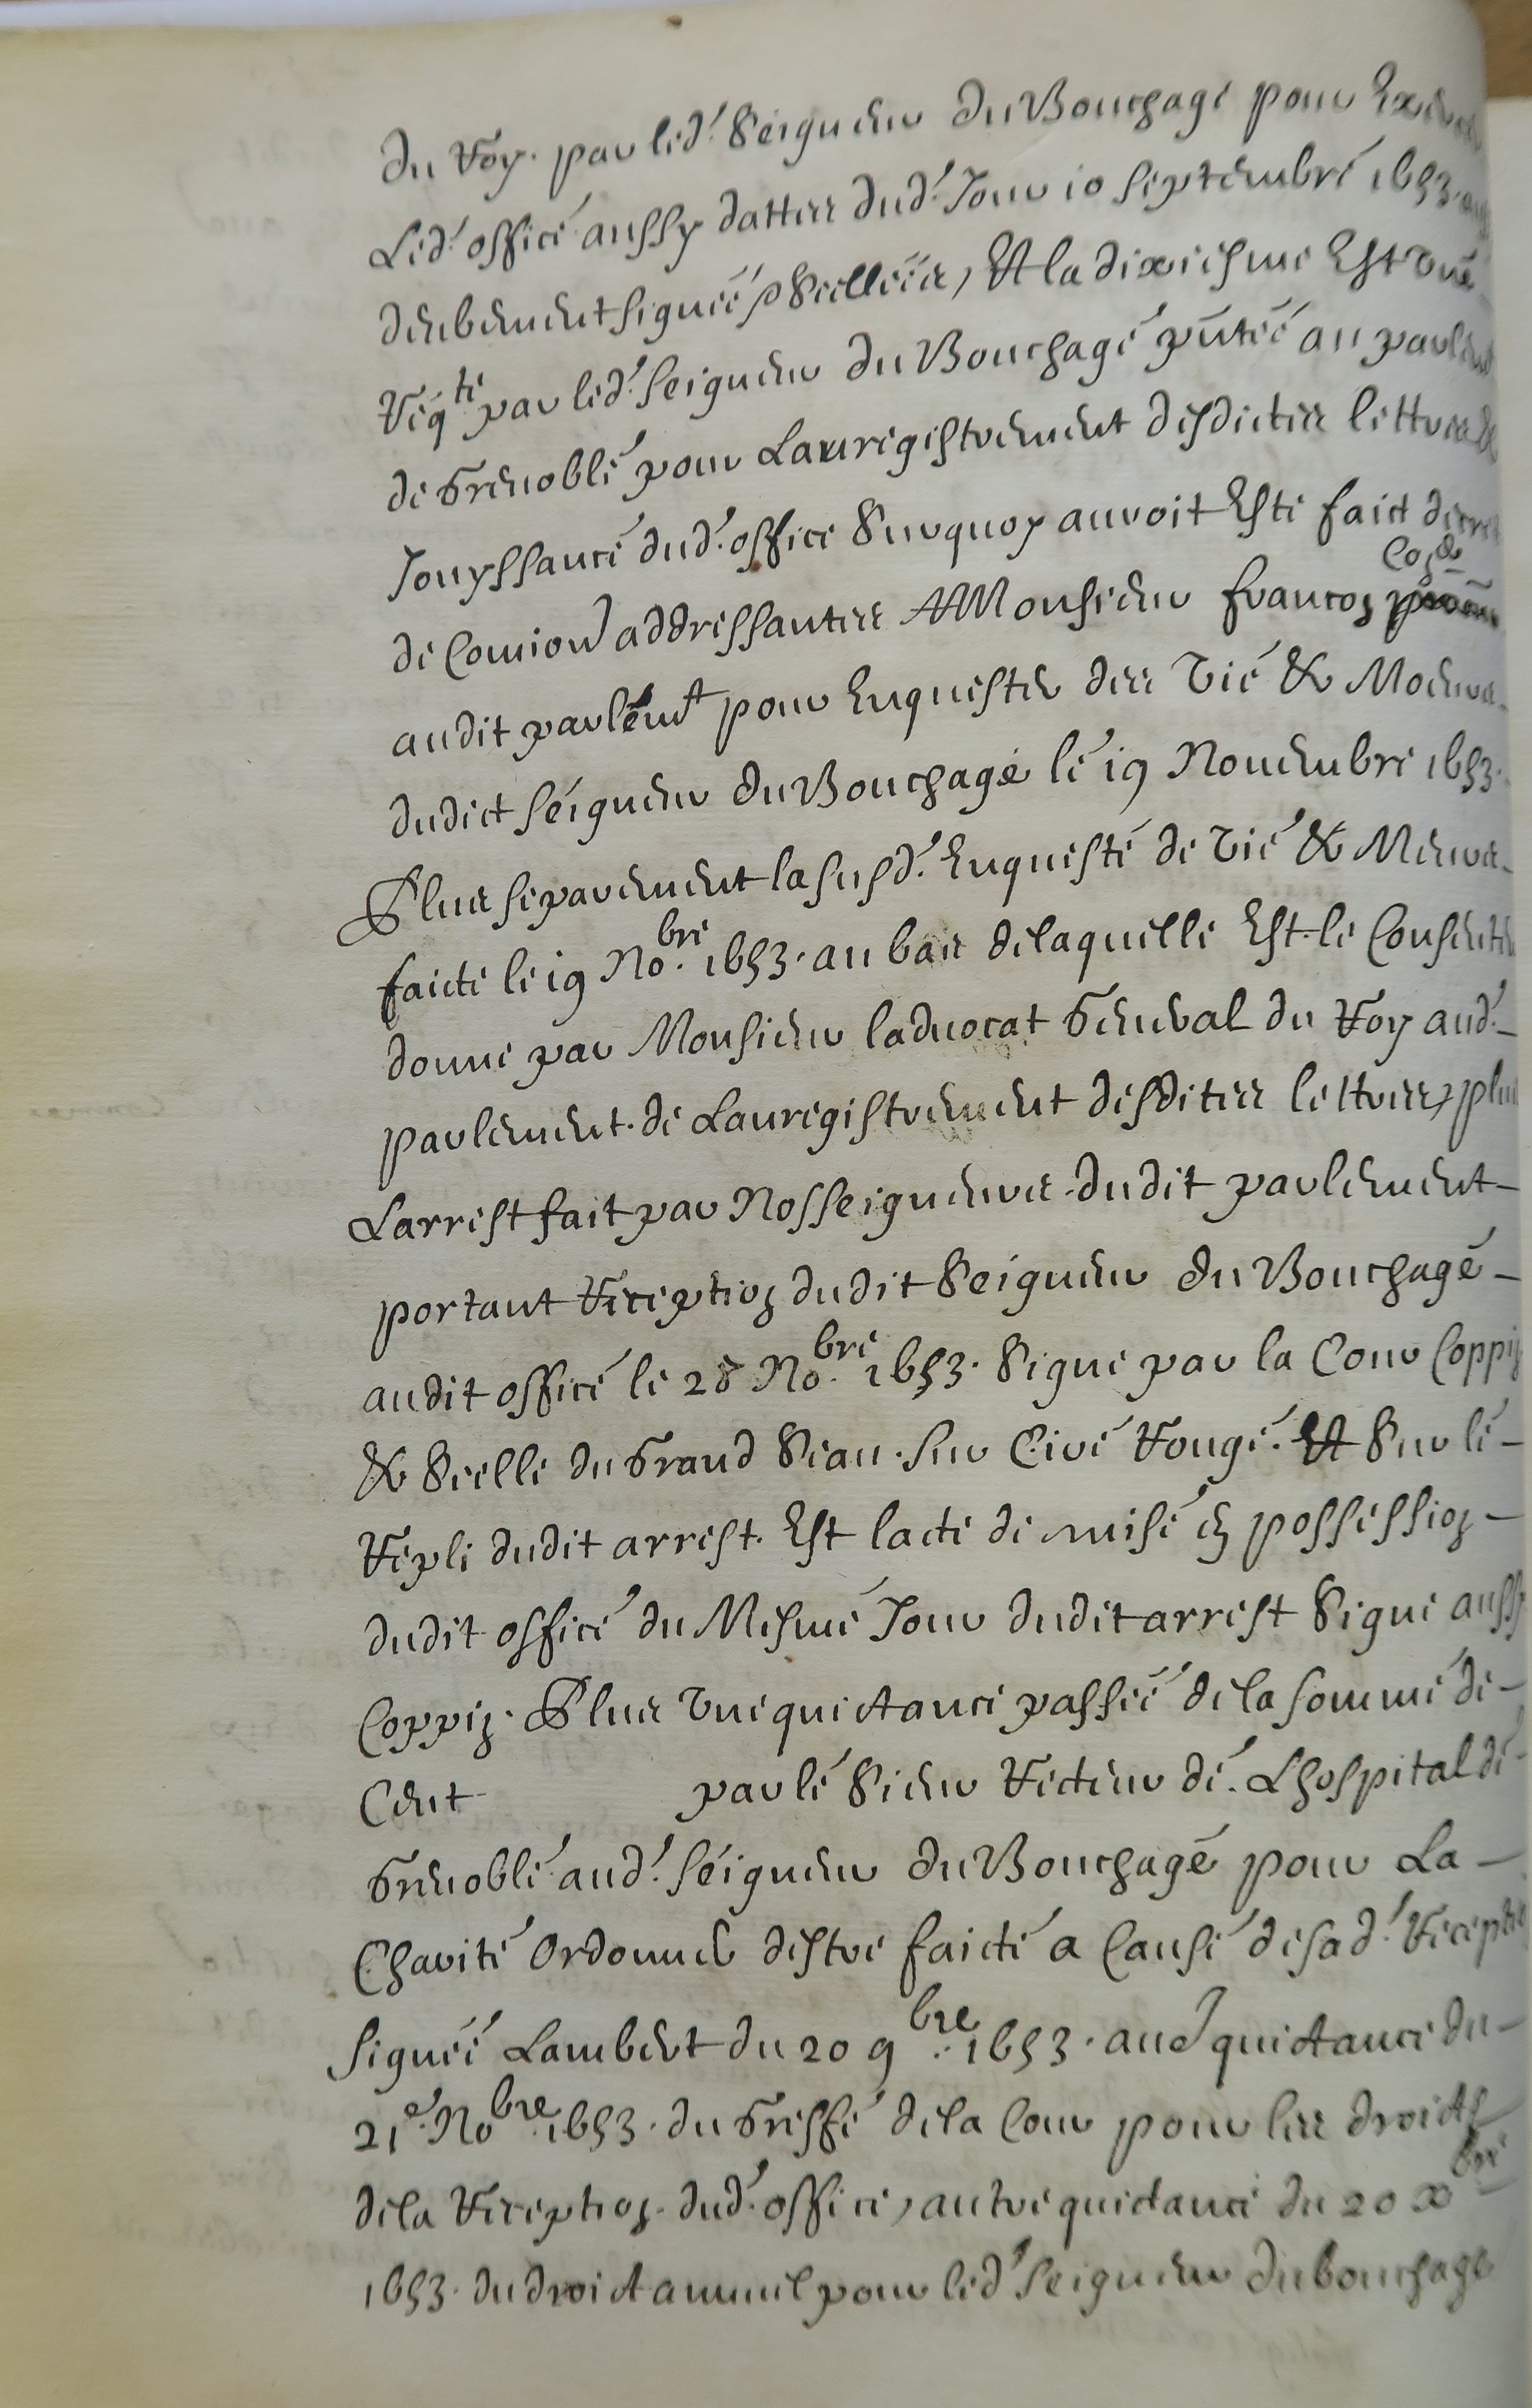 du Roy. par led.' Seigneur du Bouchage pour Exercer
Led.' office aussy dattées dud.' Jour 10 septembre 1653.
deubement signéés Scelléés, Et la dixiesme Est Une
Reqte par led.' seigneur du Bouchage pntéé au parlem
de Grenoble pour Lanregistrement desdictes lettres &
Jouyssance dud.' office Surquoy auroit Esté faict decret
de Comion addressantes A Monsieur francoy Cogd
audit parlemt pour Enquester des Vie & Moeurs
dudict seigneur du Bouchage le 19 Nouembre 1653.
Plus separement la susd.' Enqueste de Vie & Meurs
faicte le 19 Nobre. 1653. au bas delaquelle Est le Consentem
donne par Monsieur laduocat General du Roy aud.'
parlement. de Lanregistrement desdites lettres, plus
Larrest fait par Nosseigneurs. dudit parlement
portant Reception dudit Seigneur du Bouchage
audit office le 28 Nobre. 1653. Signe par la Cour Coppin
& Scelle du Grand Seau. sur Cire Rouge. Et Sur le
Repli dudit arrest. Est lacte de mise en possession
dudit office du Mesme Jour dudit arrest Signe aussy
Coppin. Plus Une quictance passéé de la somme de
Cent par le Sieur Recteur de. Lhospital de
Grenoble aud.' seigneur du Bouchage pour La
Charité Ordonnee destre faicte a Cause desad.' Reception
signéé Lambert du 20 9bre. 1653. aue quictance du
21e. Nobre. 1653. du Greffe dela Cour pour les droicts
dela Reception. dud.' office, autre quictance du 20 Xbre
1653. du droict annuel pour led.' seigneur du bouchage